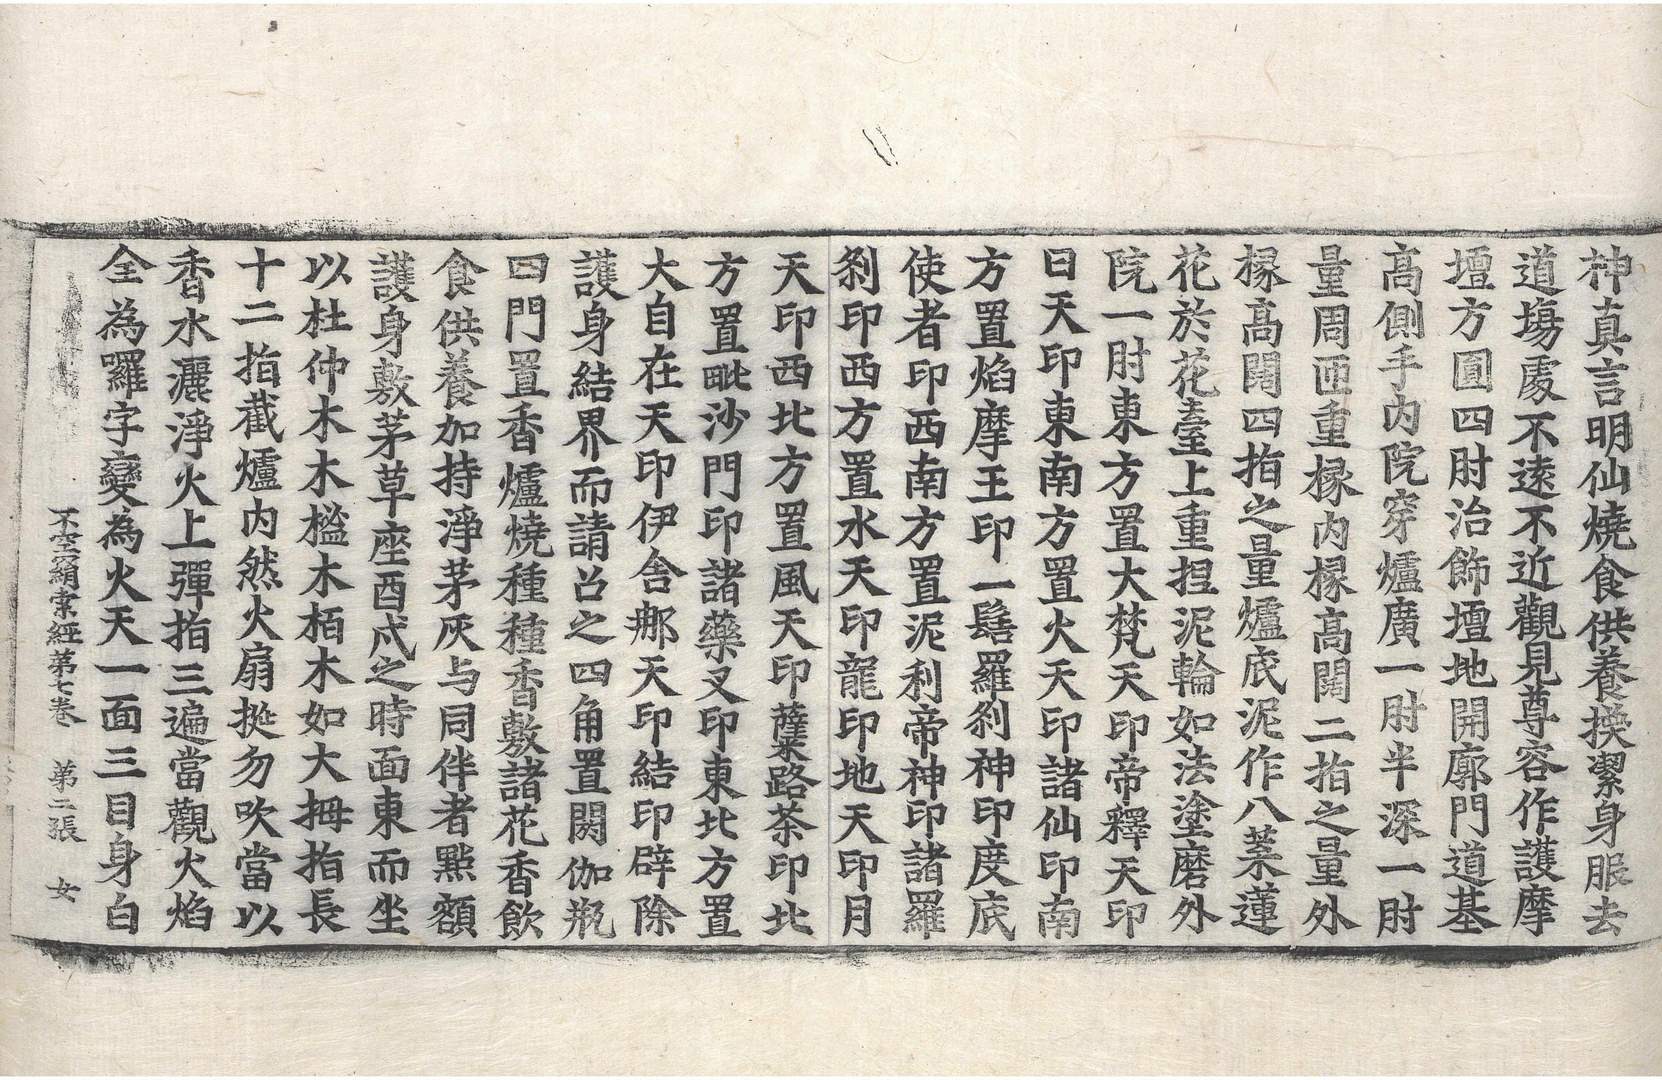 神真言明仙燒食供養換潔身服去
道塲處不遠不近觀見尊容作護摩
壇方圓四肘治飾壇地開廓門道基
高側手內院穿爐廣一肘半深一肘
量周匝重緣內緣高闊二指之量外
緣高闊四指之量爐底泥作八葉蓮
花於花臺上重捏泥輪如法塗磨外
院一肘東方置大梵天印帝釋天印
日天印東南方置火天印諸仙印南
方置焰摩王印一髻羅刹神印度底
使者印西南方置泥利帝神印諸羅
刹印西方置水天印龍印地天印月
天印西北方置風天印薩㗚路茶印北
方置毗沙門印諸藥叉印東北方置
大自在天印伊舍那天印結印辟除
護身結界而請召之四角置閼伽瓶
四門置香爐燒種種香敷諸花香飲
食供養加持淨茅灰与同伴者點額
護身敷茅草座酉戌之時面東而坐
以杜仲木木槵木栢木如大拇指長
十二指截爐內然火扇挻勿吹當以
香水灑淨火上彈指三遍當觀火焰
全為囉字變為火天一面三目身白
不空羂索經第七卷 第二張 女